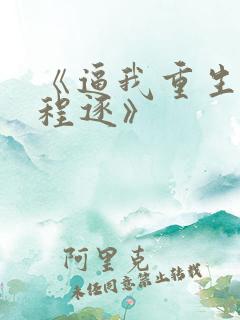 《逼我重生
程逐》
阿里克
未经同意禁止转载